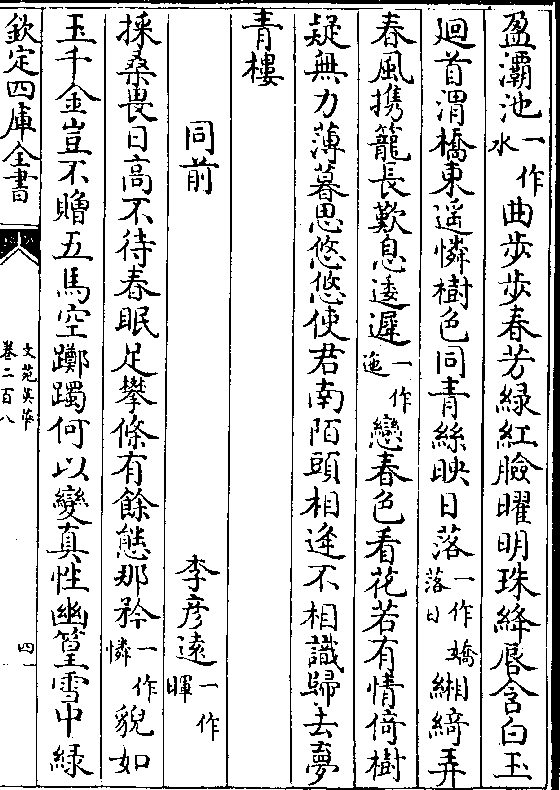 盈灞池一作水曲步步春芳緑紅臉曜明珠絳唇含白玉
廻首渭橋東遥憐樹色同青絲映日落一作落日嬌緗綺弄
春風攜籠長歎息逶遲一作迤戀春色看花若有情倚樹
疑無力薄暮思悠悠使君南陌頭相逢不相識歸去夢
青樓
同前
李彦遠一作暉
採桑畏日高不待春眠足攀條有餘態那矜一作憐貌如
玉千金豈不贈五馬空躑躅何以變真性幽篁雪中緑
欽定四庫全書
文苑英華
卷二百八
四